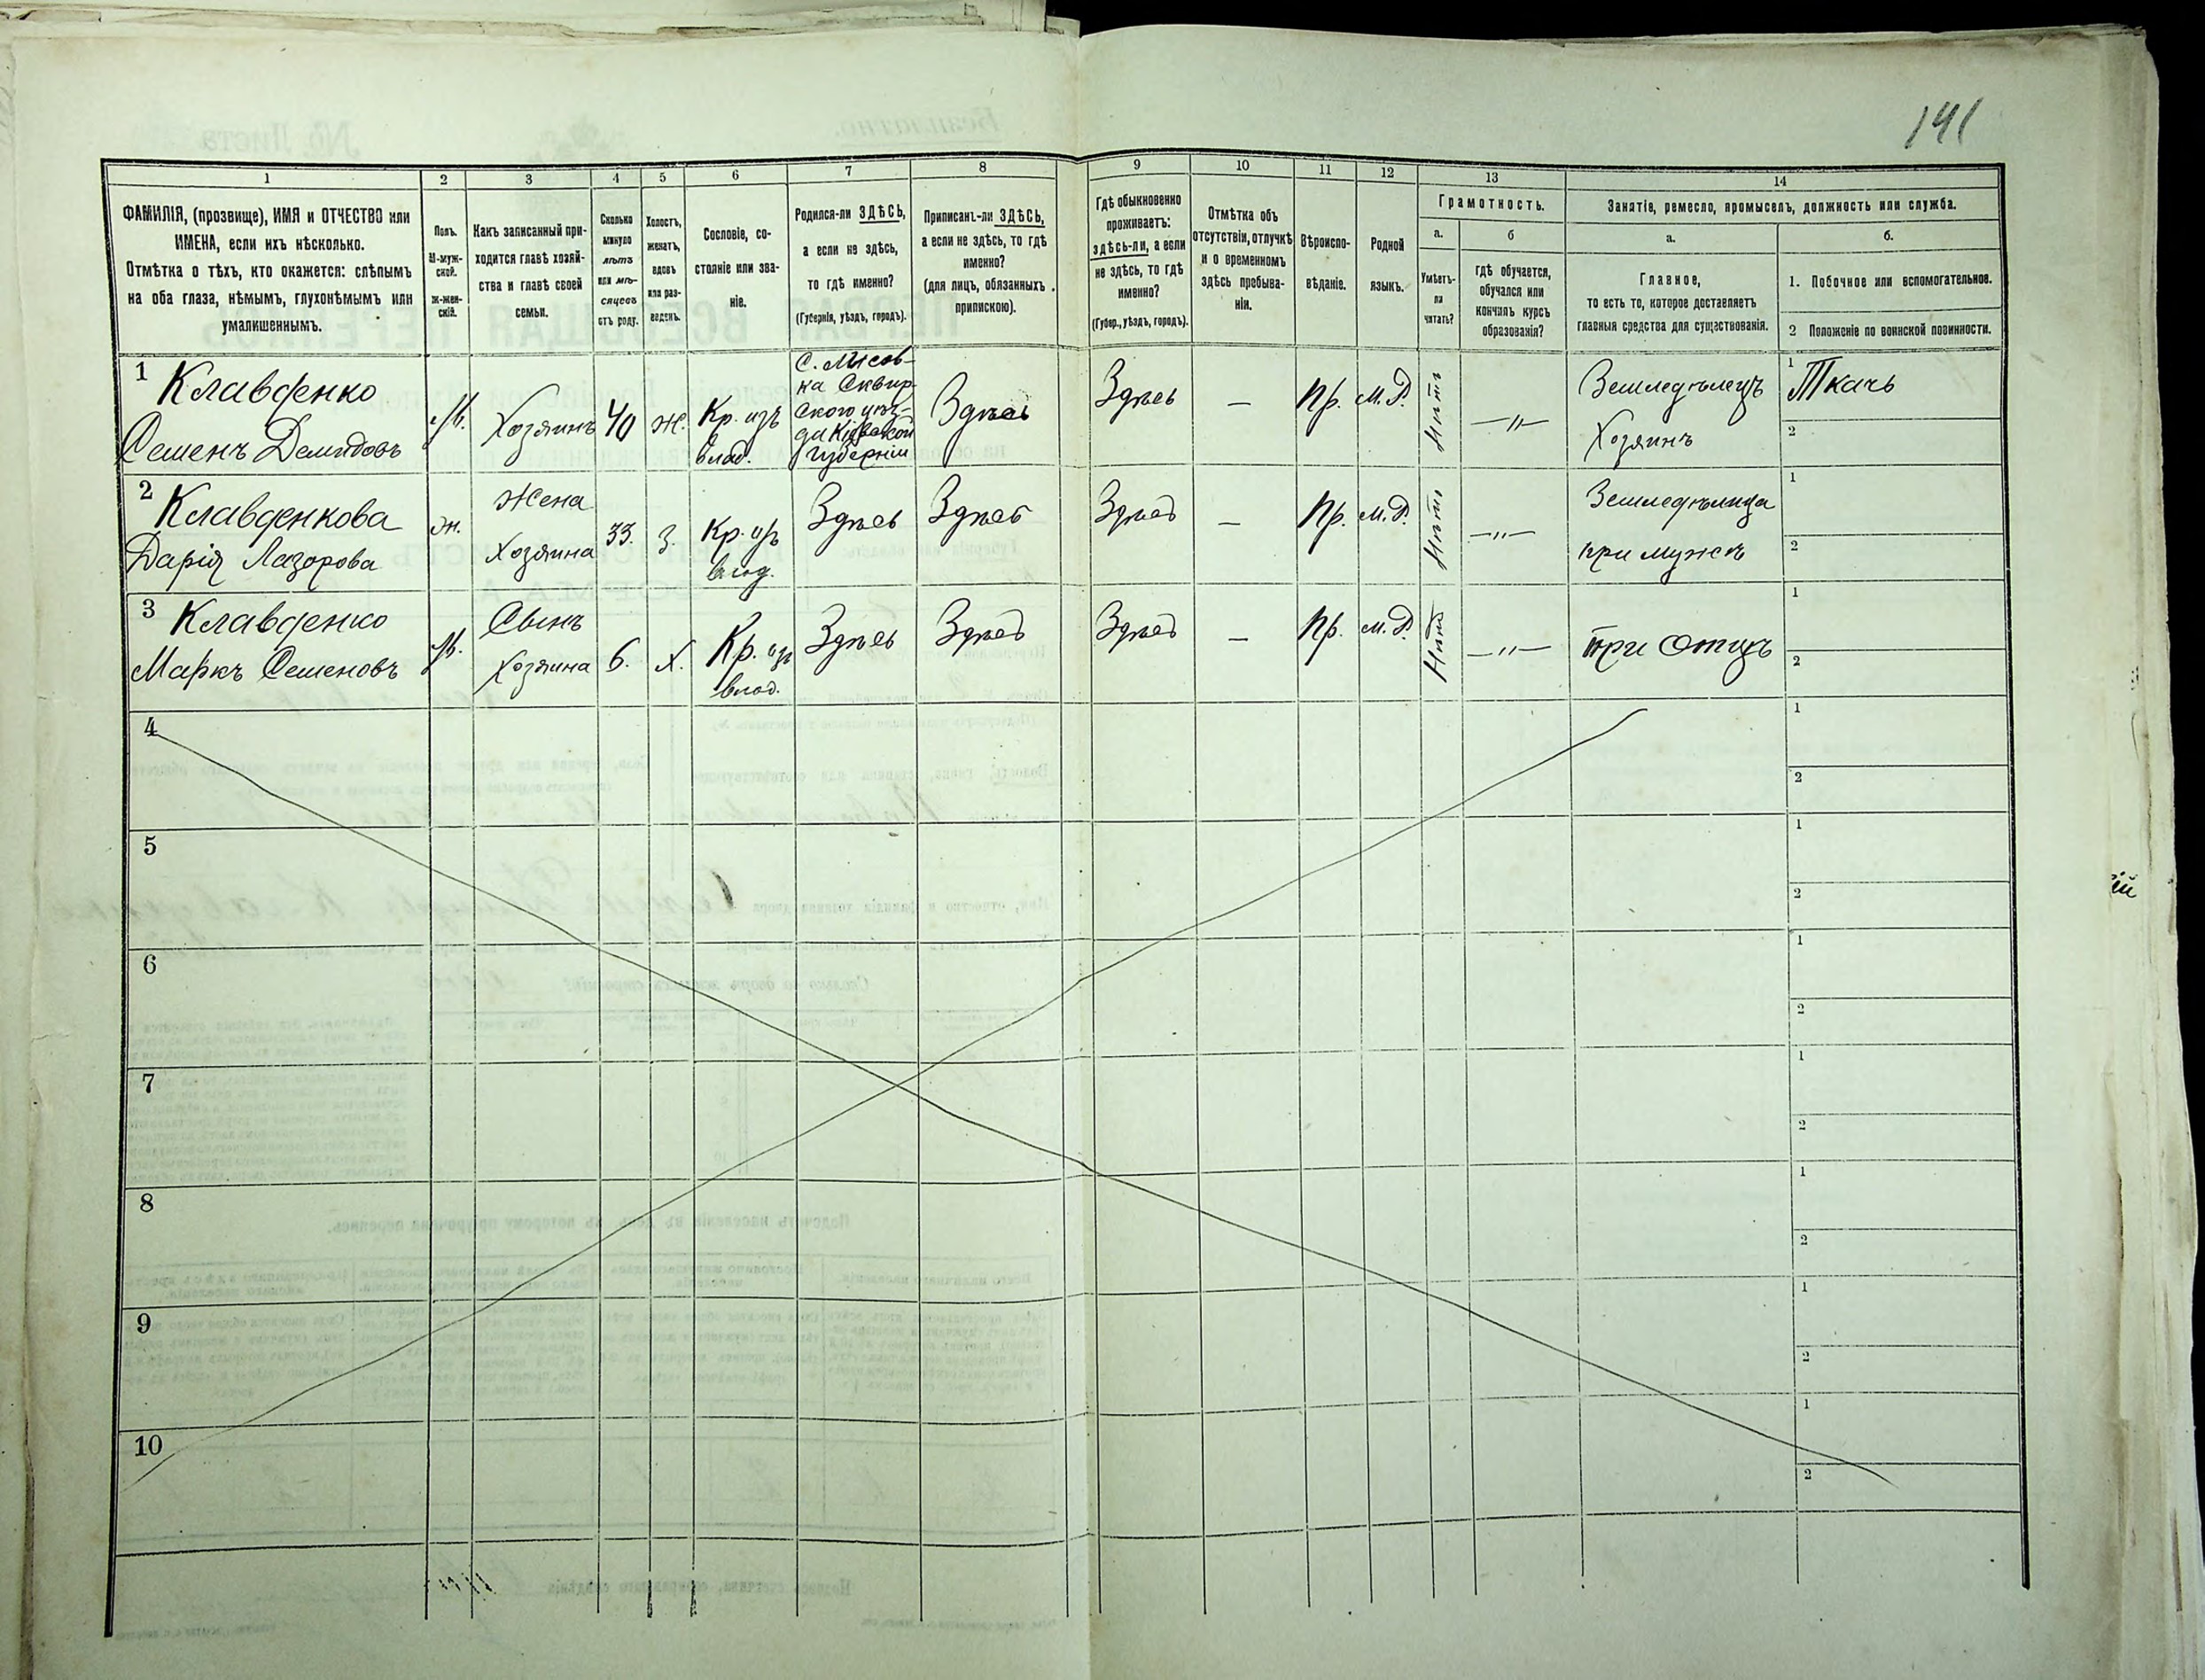 141
1
2
3
4
5
6
7
8
9
10
11
12
13
14
ФАМИЛІЯ, (прозвище), ИМЯ и ОТЧЕСТВО или
ИМЕНА, если ихъ нѣсколько.
Отмѣтка о тѣхъ, кто окажется: слѣпымъ
на оба глаза, нѣмымъ, глухонѣмымъ или
умалишеннымъ.
Полъ.
М-муж-
ской.
ж-жен-
скій.
Какъ записанный при-
ходится главѣ хозяй-
ства и главѣ своей
семьи.
Сколько
минуло
лѣтъ
или мѣ-
сяцевъ
отъ роду.
Холостъ,
женатъ,
вдовъ
или раз-
веденъ.
Сословіе, со-
стояніе или зва-
ніе.
Родился-ли ЗДѢСЬ,
а если не здѣсь,
то гдѣ именно?
(Губернія, уѣздъ, городъ).
Приписанъ-ли ЗДѢСЬ,
а если не здѣсь, то гдѣ
именно?
(для лицъ, обязанныхъ
припискою).
Гдѣ обыкновенно
проживаетъ:
здѣсь-ли, а если
не здѣсь, то гдѣ
именно?
(Губер., уѣздъ, городъ).
Отмѣтка объ
отсутствіи, отлучкѣ
и о временномъ
здѣсь пребыва-
ніи.
Вѣроиспо-
вѣданіе.
Родной
языкъ.
Грамотность.
а.
б
Умѣетъ-
ли
читать?
гдѣ обучается,
обучался или
кончилъ курсъ
образованія?
Занятіе, ремесло, промыселъ, должность или служба.
а.
б.
Главное,
то есть то, которое доставляетъ
главныя средства для существованія.
1. Побочное или вспомогательное.
2 Положеніе по воинской повинности.
1
Клавденко
Семенъ Демидовъ
М.
Хозяинъ
40
Ж.
Кр. изъ
влад.
С. Лисов-
ка Сквир-
ского уѣз-
да Кіевской
Губерніи
Здѣсь
Здѣсь
—
Пр.
М. Р.
Нѣтъ
—"—
Земледѣлецъ
Хозяинъ
1
Ткачь
2
2
Клавденкова
Дарія Лазорова
ж.
Жена
Хозяина
33.
З.
Кр. изъ
влад.
Здѣсь
Здѣсь
Здѣсь
—
Пр.
М. Р.
Нѣтъ
—"—
Земледѣлица
при мужѣ
1
2
3
Клавденко
Маркъ Семеновъ
М.
Сынъ
Хозяина
6.
Х.
Кр. изъ
влад.
Здѣсь
Здѣсь
Здѣсь
—
Пр.
М. Р.
Нѣтъ
—"—
при Отцѣ
1
2
4
1
2
5
1
2
6
1
2
7
1
2
8
1
2
9
1
2
10
1
2